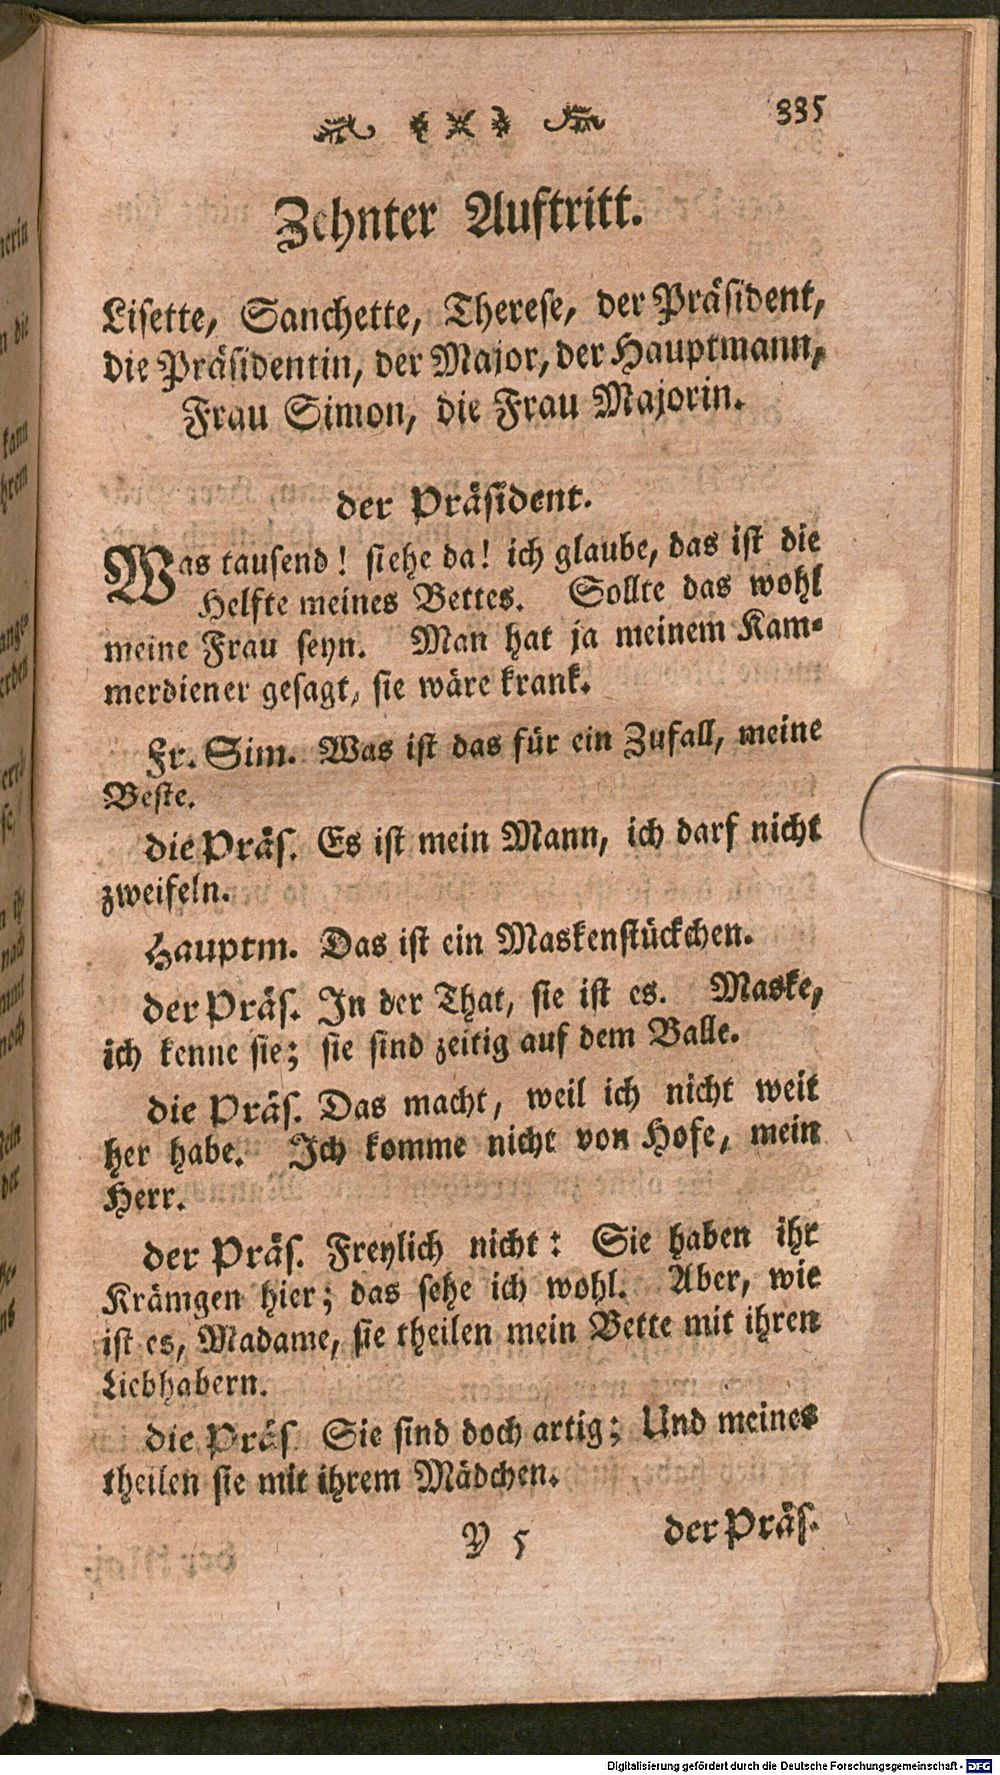 335
Zehnter Auftritt.
Lisette, Sanchette, Therese, der Präsident,
die Präsidentin, der Major, der Hauptmann,
Frau Simon, die Frau Majorin.
der Präsident.
Was tausend! siehe da! ich glaube, das ist die
Helfte meines Bettes. Sollte das wohl
meine Frau seyn. Man hat ja meinem Kam-
merdiener gesagt, sie wäre krank.
Fr. Sim. Was ist das für ein Zufall, meine
Beste.
die Präs. Es ist mein Mann, ich darf nicht
zweifeln.
Hauptm. Das ist ein Maskenstückchen.
der Präs. In der That, sie ist es. Maske,
ich kenne sie; sie sind zeitig auf dem Balle.
die Präs. Das macht, weil ich nicht weit
her habe. Ich komme nicht von Hofe, mein
Herr.
der Präs. Freylich nicht: Sie haben ihr
Krämgen hier; das sehe ich wohl. Aber, wie
ist es, Madame, sie theilen mein Bette mit ihren
Liebhabern.
die Präs. Sie sind doch artig; Und meines
theilen sie mit ihrem Mädchen.
Y 5 der Präs.
Digitalisierung gefördert durch die Deutsche Forschungsgemeinschaft - DFG